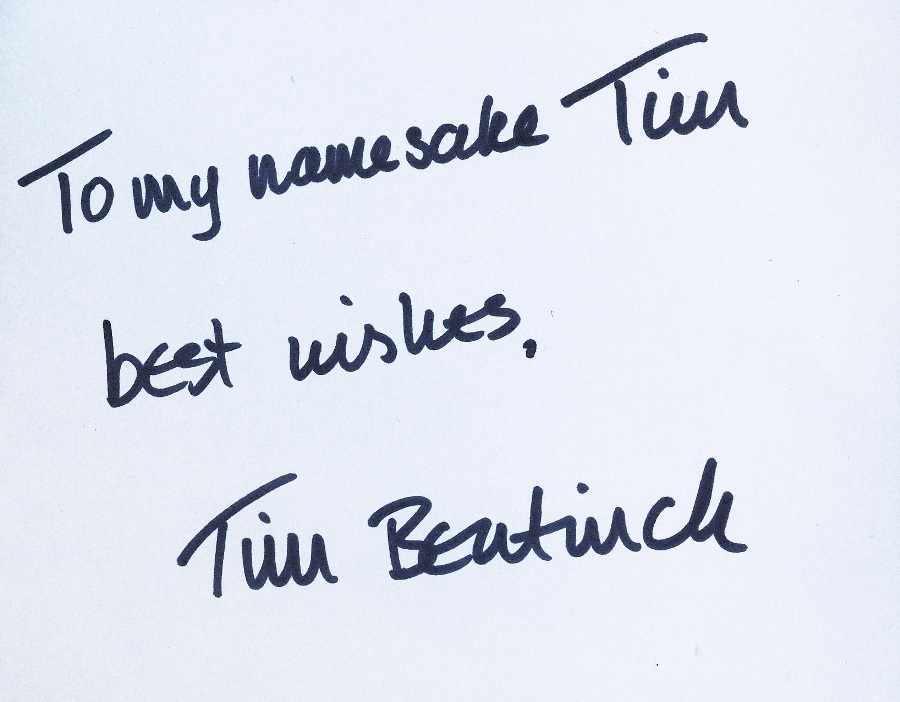 To my namesake Tim
best wishes,
Tim Bentinck